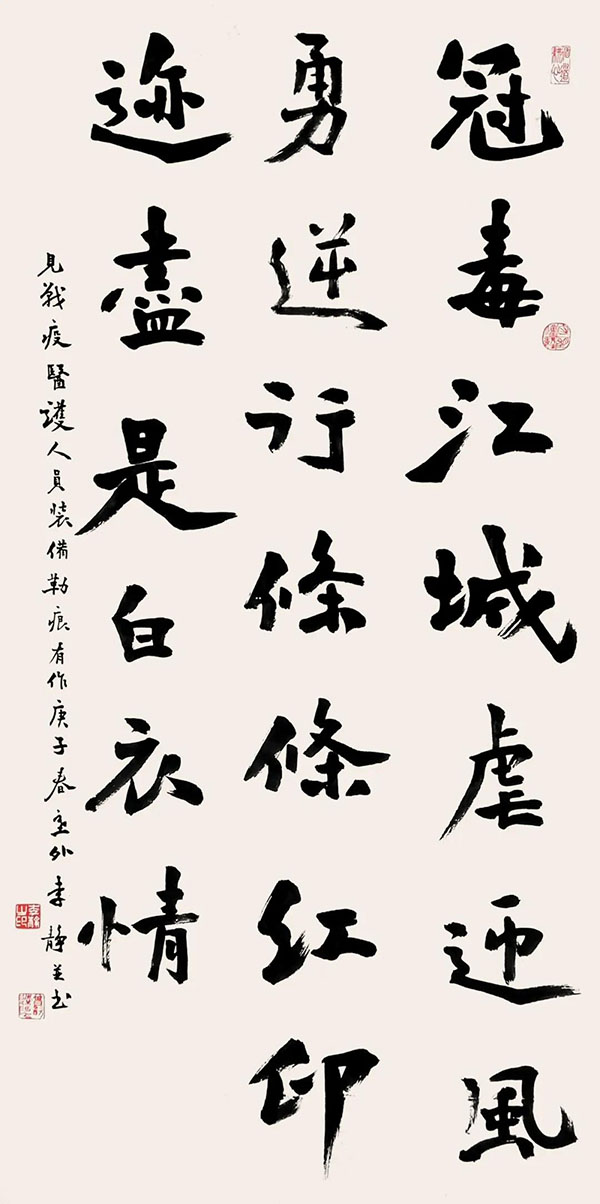 冠毒江城虐迎風
勇逆行條條紅印
迹盡是白衣情
見戰疫醫護人員裝備勒痕有作庚子春塞外李靜並书